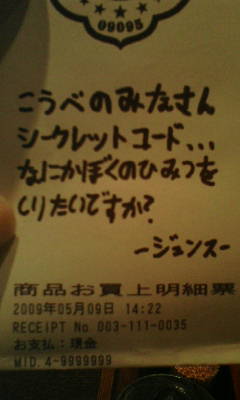 09095
こうべのみなさん
シークレットコード、、、
なにかぼくのひみつを
しりたいですか?
ージュンスー
商品お買上明細票
2009年05月09日 14:22
RECEIPT No. 003-111-0035
お支払:現金
MID. 4-9999999